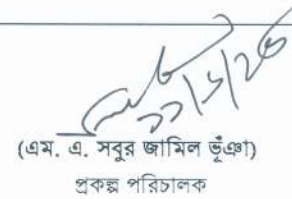 (এম. এ. সবুর জামিল ভূঁঞা)
প্রকল্প পরিচালক